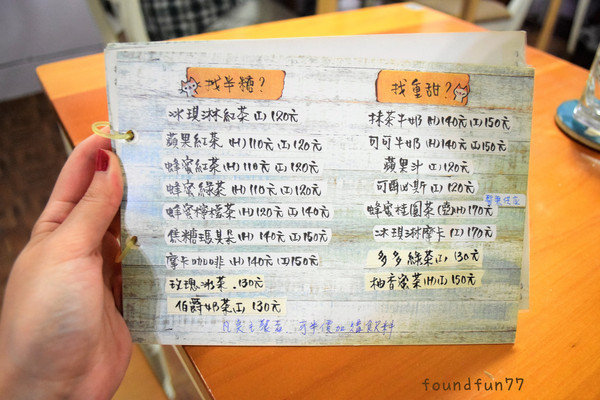 找半糖?
冰琪淋紅茶(I)120元
蘋果紅茶(H)110元(I)120元
蜂蜜紅茶(H)110元(I)120元
蜂蜜綠茶(H)110元(I)120元
蜂蜜檸檬茶(H)120元(I)140元
焦糖瑪其朵(H)140元(I)150元
摩卡咖啡(H)140元(I)150元
玫瑰冰茶.130元
伯爵奶茶(I)130元
找重甜?
抹茶牛奶(H)140元(I)150元
可可牛奶(H)140元(I)150元
蘋果汁(I)120元
可爾必斯(I)120元
蜂蜜桂圓茶(壺)(H)170元
冰琪淋摩卡(I)170元
多多綠茶(I)130元
柚香蜜茶(H)(I)150元
凡點主餐者 可半價加購飲料
foundfun77